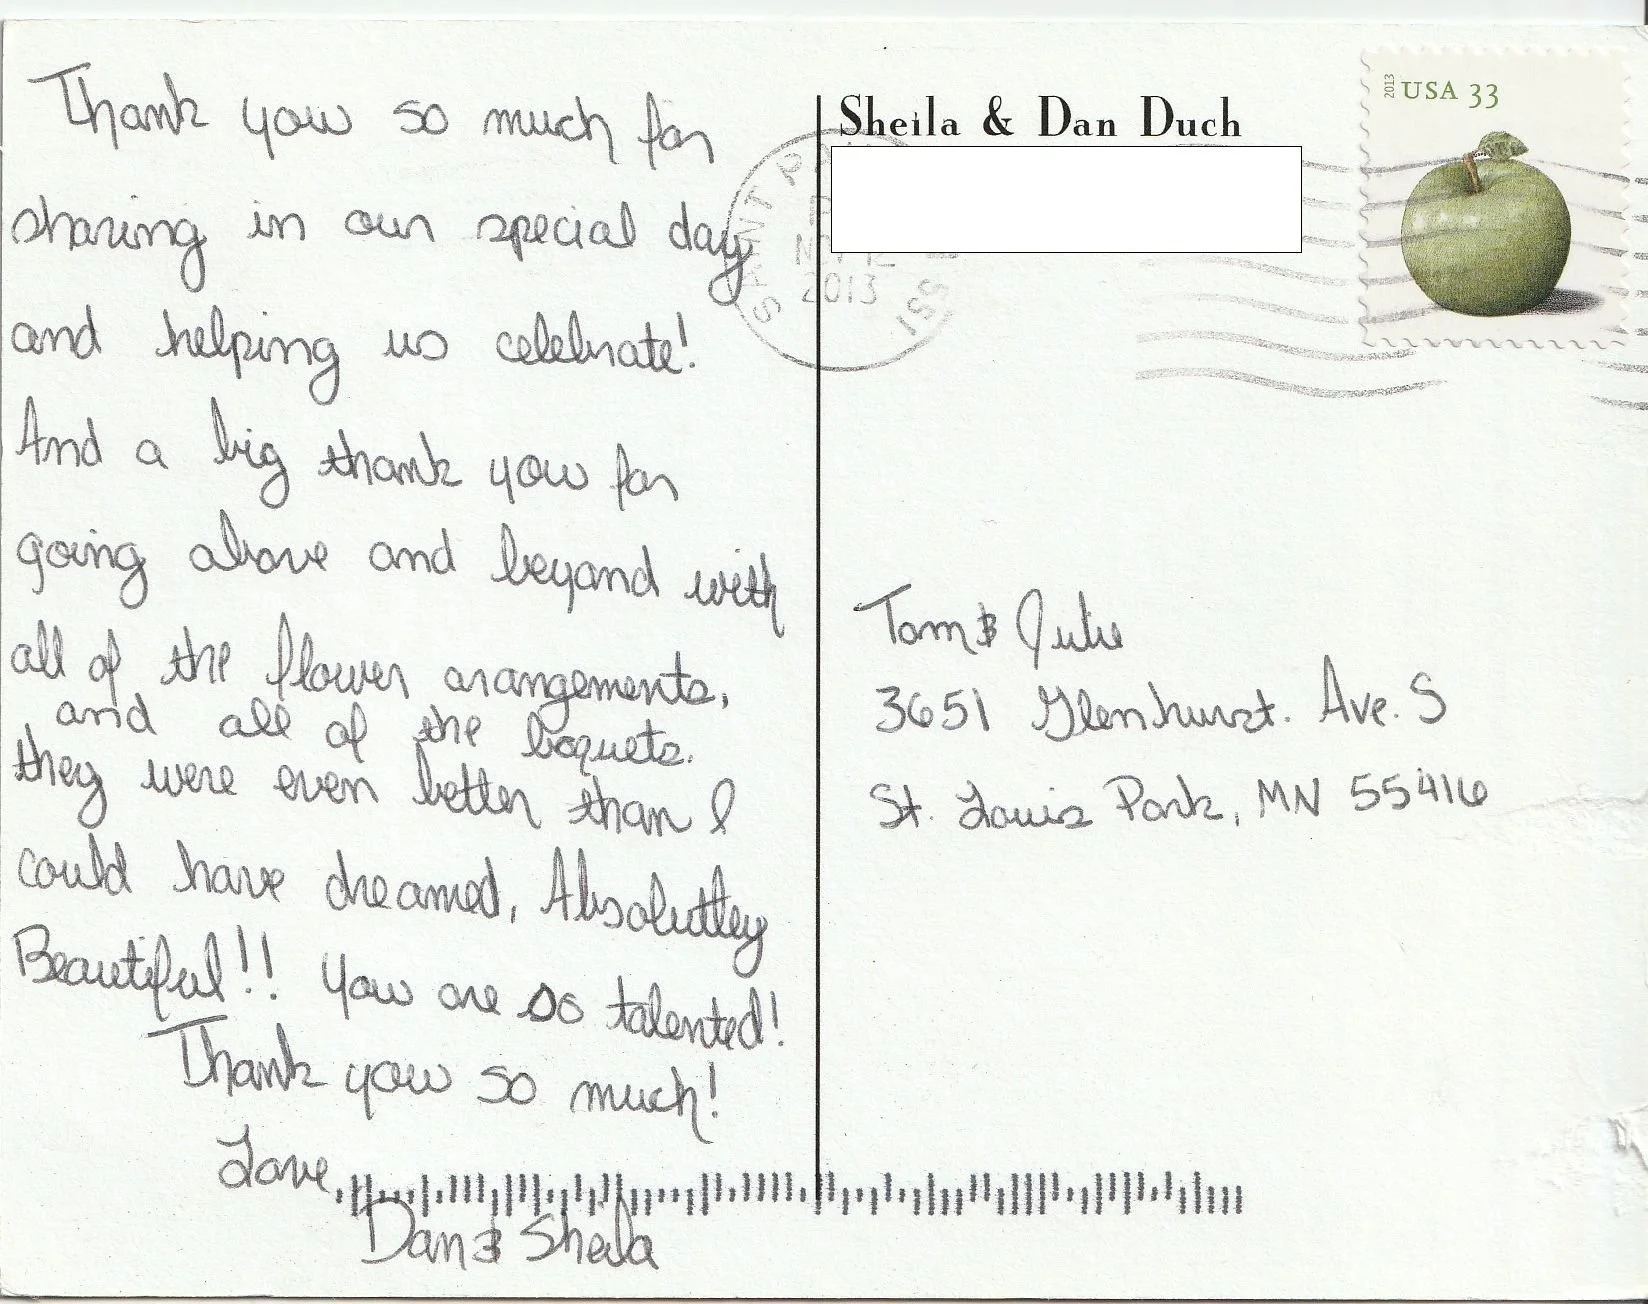 Thank you so much for
sharing in our special day
and helping us celebrate!
And a big thank you for
going above and beyond with
all of the flower arangements,
and all of the boquets.
they were even better than I
could have dreamed, Absolutley
Beautiful!! You are so talented!
Thank you so much!
Love,
Dan & Sheila
Sheila & Dan Duch
2013
USA 33
SAINT P
2013
Tom & Julie
3651 Glenhurst. Ave. S
St. Louis Park, MN 55416